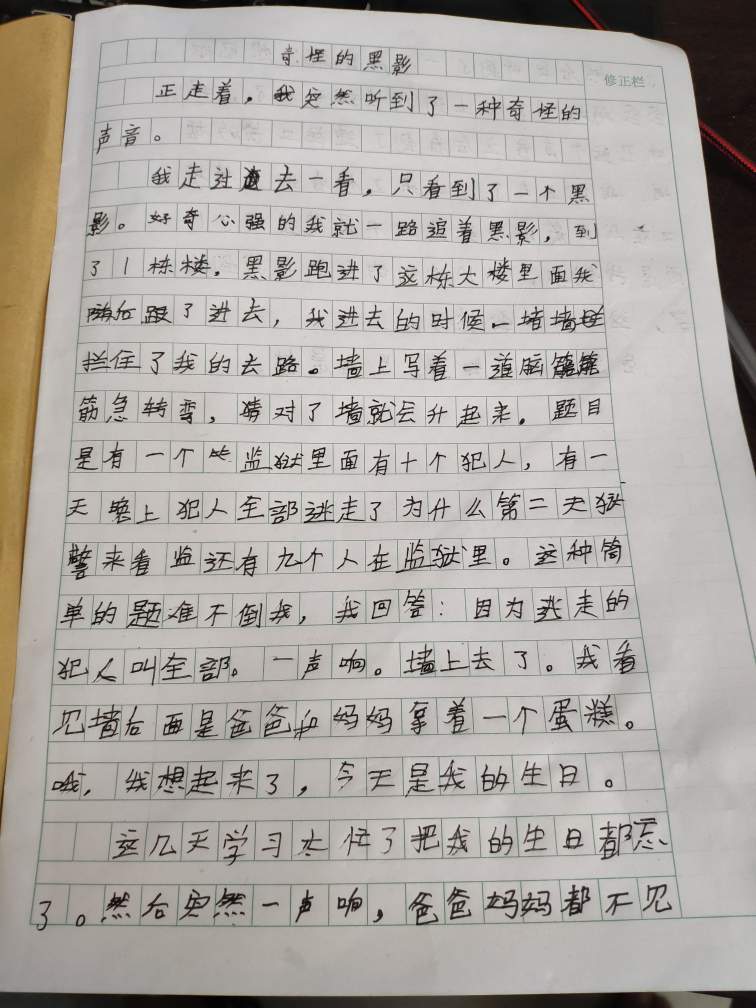 奇怪的黑影
修正栏
正走着，我突然听到了一种奇怪的
声音。
我走过去一看，只看到了一个黑
影。好奇心强的我就一路追着黑影，到
了1栋楼，黑影跑进了这栋大楼里面我
随后跟了进去，我进去的时候一堵墙
拦住了我的去路。墙上写着一道脑
筋急转弯，猜对了墙就会升起来。题目
是有一个监狱里面有十个犯人，有一
天晚上犯人全部逃走了为什么第二天狱
警来看监还有九个人在监狱里。这种简
单的题难不倒我，我回答：因为逃走的
犯人叫全部。一声响。墙上去了。我看
见墙后面是爸爸和妈妈拿着一个蛋糕。
哦，我想起来了，今天是我的生日。
这几天学习太忙了把我的生日都忘
了。然后突然一声响，爸爸妈妈都不见